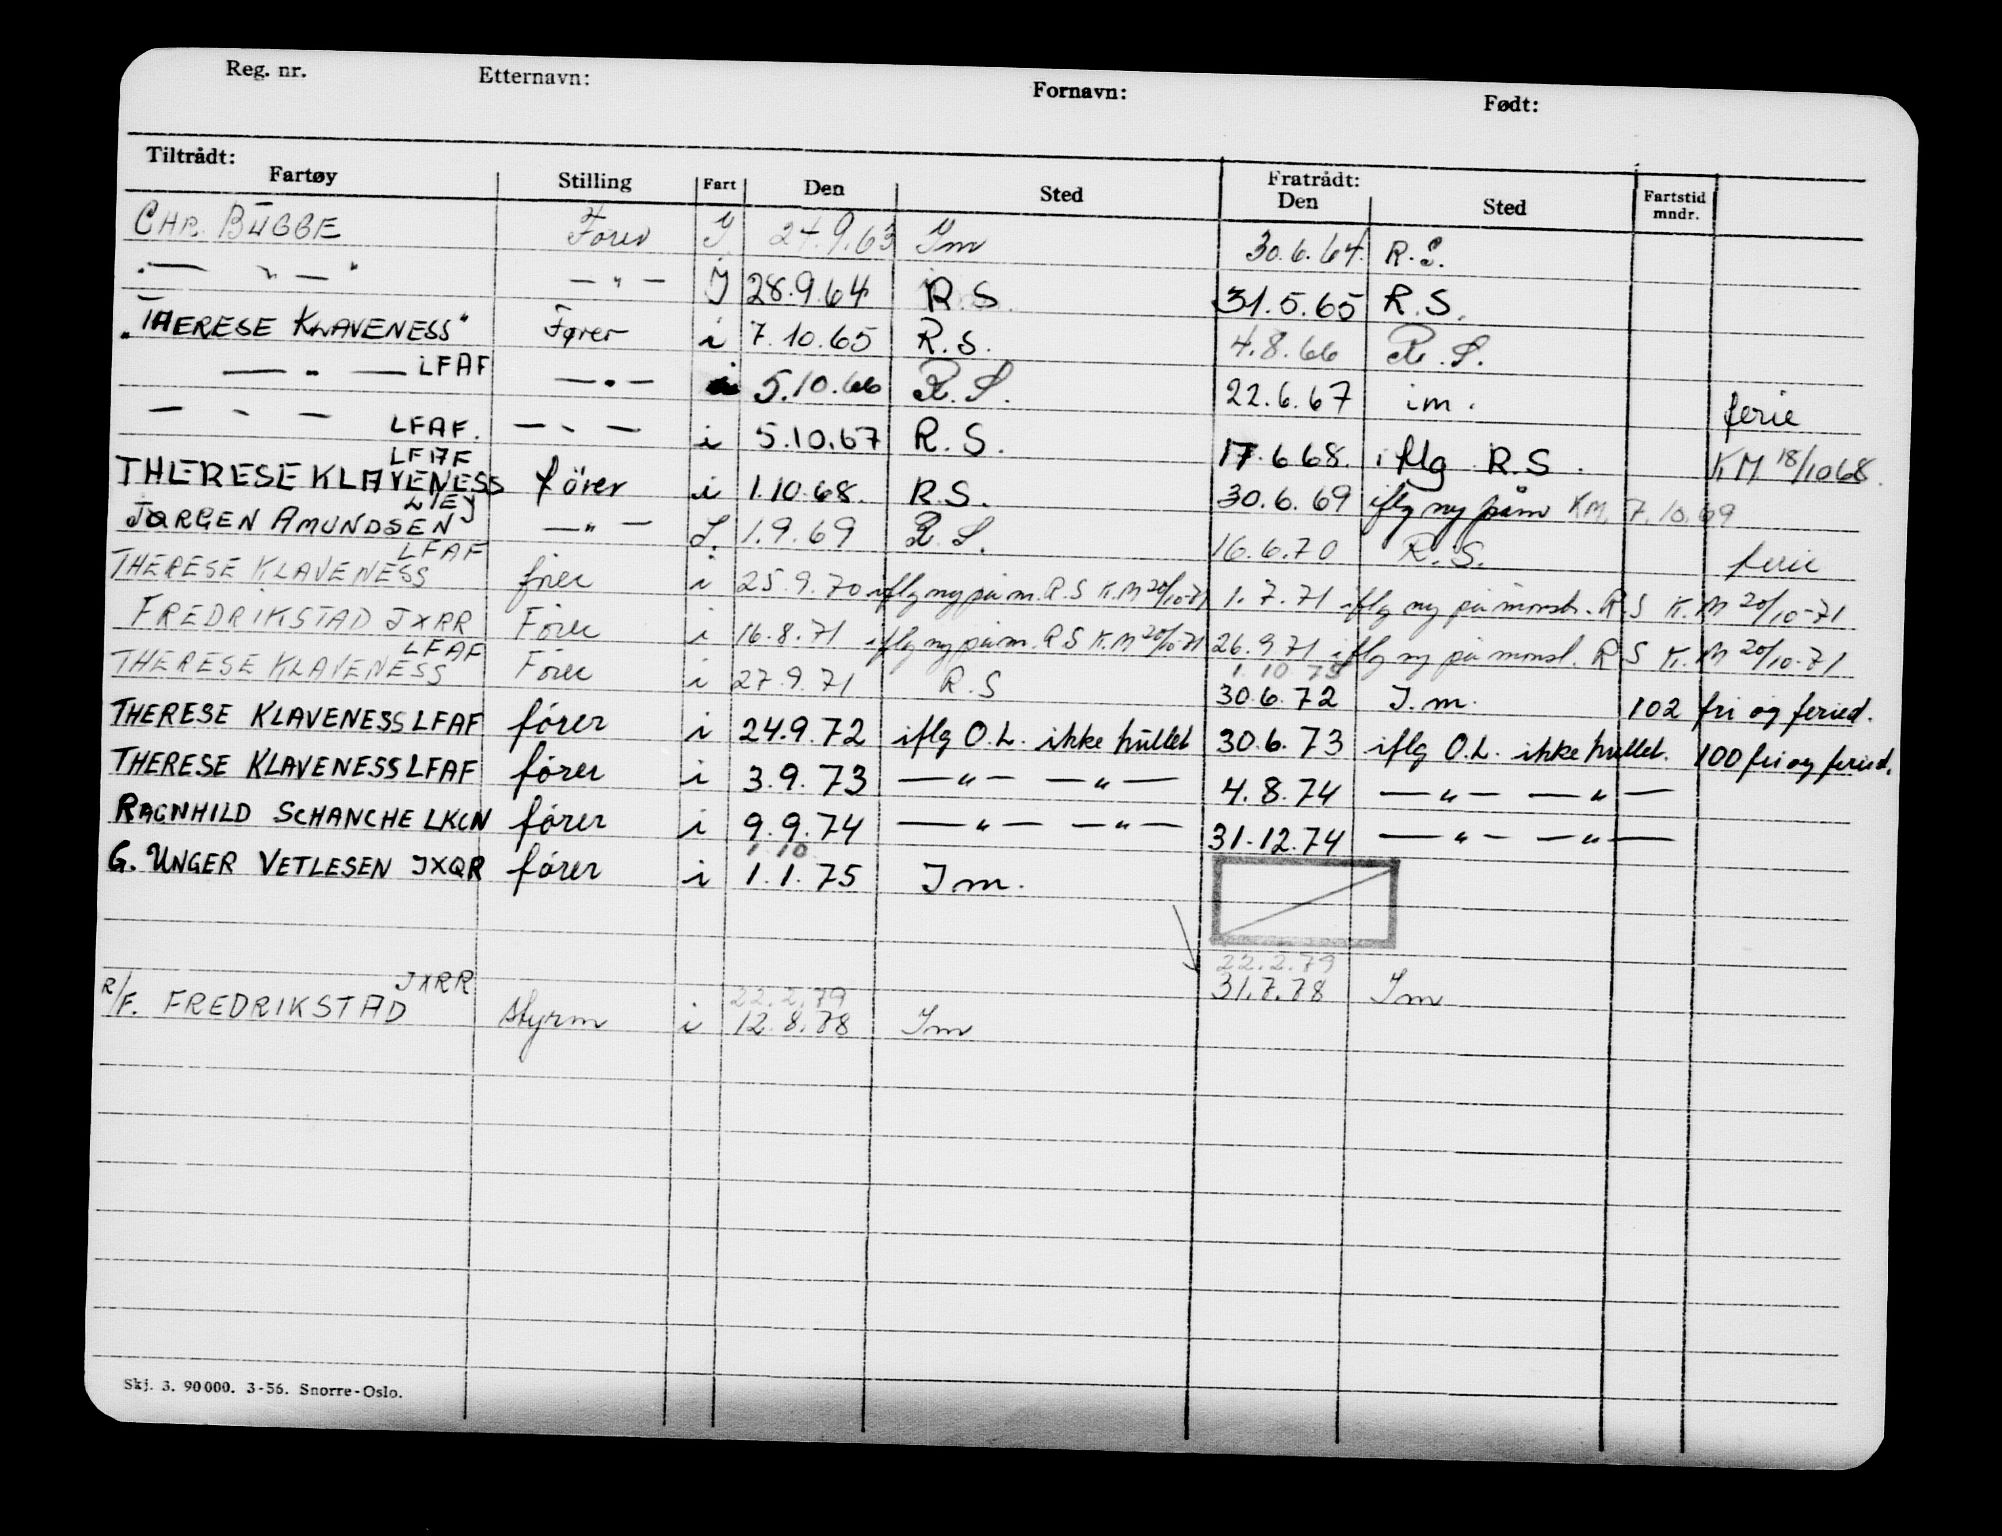 Reg. nr. Etternavn: Fornavn: Født:
Tiltrådt: Fratrådt:
Fartøy Stilling Fart Den Sted Den Sted Fartstid mndr.
CHR. BUGGE Fører I 24.9.63 Im 30.6.64. R.S.
— " — " — " — I 28.9.64 R.S. 31.5.65 R.S.
"THERESE KLAVENESS" Fører i 7.10.65 R.S. 4.8.66 R.S.
— " — LFAF — " — i 5.10.66 R.S. 22.6.67 im. ferie
— " — LFAF. — " — i 5.10.67 R.S. 17.6.68. iflg R.S. KM 18/10 68.
LFAF
THERESE KLAVENESS förer i 1.10.68. RS. 30.6.69 iflg ny påm KM. 7.10.69
JØRGEN AMUNDSEN — " — 1.9.69 R.S. 16.6.70 R.S. ferie
LFAF
THERESE KLAVENESS fører i 25.9.70 iflg ny påm. R.S K.M 20/10-71 1.7.71 iflg ny påmönst. R.S K.M 20/10-71
FREDRIKSTAD JXRR Förer i 16.8.71 iflg ny påm. R S K.M 20/10-71 26.9.71 iflg ny påmönst. R S K.M 20/10-71
LFAF
1.10.75
THERESE KLAVENESS Förer i 27.9.71 R.S 30.6.72 I.m. 102 fri og feried.
THERESE KLAVENESS LFAF fører i 24.9.72 iflg O.L. ikke hullet 30.6.73 iflg O.L. ikke hullet. 100 fri og feried.
THERESE KLAVENESS LFAF fører i 3.9.73 — " — — " — 4.8.74 — " — — " —
RAGNHILD SCHANCHE LKCN fører i 9.9.74 — " — — " — 31.12.74 — " — — " —
1 10
G. UNGER VETLESEN JXQR fører i 1.1.75 Im.
22.2.79
31.7.78 Im
JXRR
22.2.79
R/F. FREDRIKSTAD styrm i 12.8.78 Im
Skj. 3. 90000. 3-56. Snorre-Oslo.